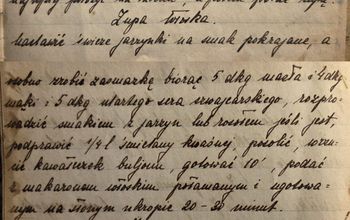 Zupa włoska.
Nastawić świeże jarzynki na smak pokrajane, a
osobno zrobić zasmarkę biorąc 5 dkg masła i 4 dkg
mąki i 5 dkg utartego sera szwajcarskiego, rozpro-
wadzić smakiem z jarzyn lub rosołem jeśli jest,
podprawić 1/4 l śmietany kwaśnej, posolić, wrzu-
cić kawałeczek buljonu, gotować 10', podać
z makaronem włoskim połamanym i ugotowa-
nym na słonym ukropie 20-30 minut.